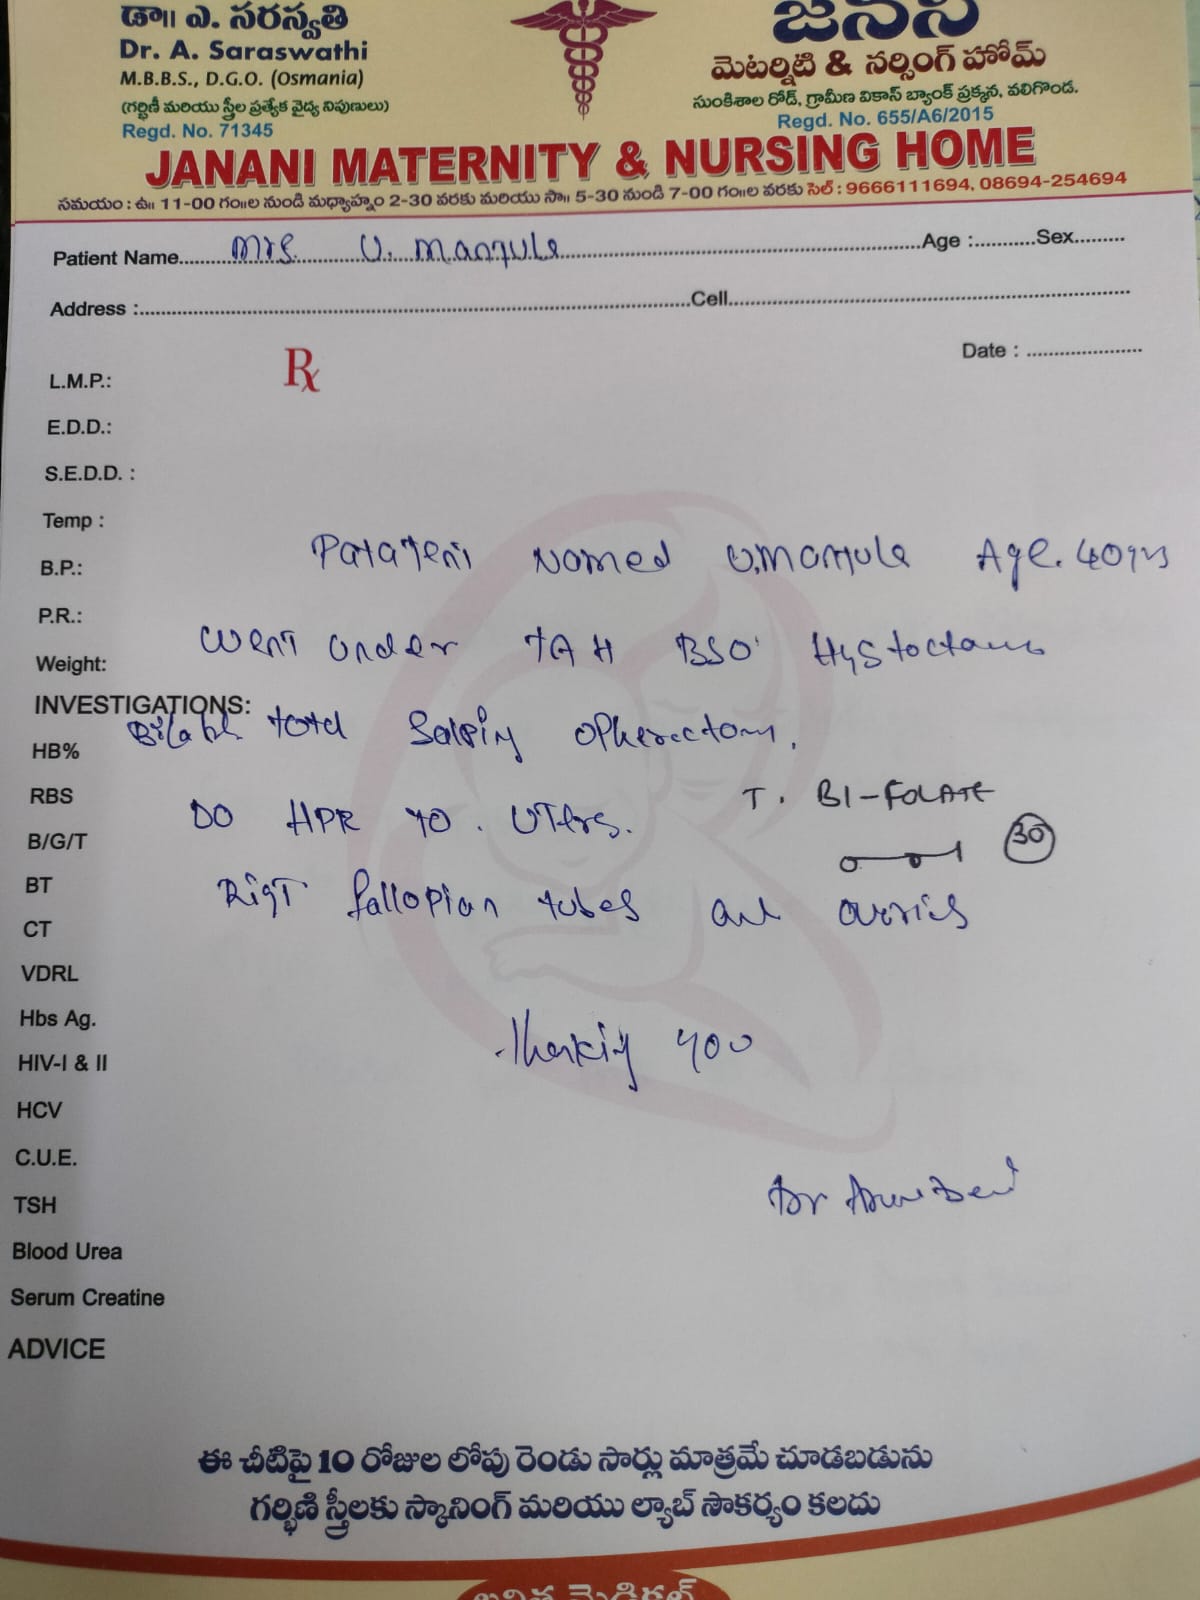 డా॥ ఎ. సరస్వతి
Dr. A. Saraswathi
M.B.B.S., D.G.O. (Osmania)
(గర్భిణీ మరియు స్త్రీల ప్రత్యేక వైద్య నిపుణులు)
Regd. No. 71345
జనని
మెటర్నిటి & నర్సింగ్ హోమ్
సుంకిశాల రోడ్, గ్రామీణ వికాస్ బ్యాంక్ ప్రక్కన, వలిగొండ.
Regd. No. 655/A6/2015
JANANI MATERNITY & NURSING HOME
సమయం : ఉ॥ 11-00 గం॥ల నుండి మధ్యాహ్నం 2-30 వరకు మరియు సా॥ 5-30 నుండి 7-00 గం॥ల వరకు సెల్ : 9666111694, 08694-254694
Patient Name Mrs. U. Manjula Age : Sex
Address : Cell
Date :
Rx
L.M.P.:
E.D.D.:
S.E.D.D. :
Temp :
B.P.:
P.R.:
Weight:
INVESTIGATIONS:
HB%
RBS
B/G/T
BT
CT
VDRL
Hbs Ag.
HIV-I & II
HCV
C.U.E.
TSH
Blood Urea
Serum Creatine
ADVICE
Named U. Manjula Age. 40yrs
went under TAH BSO
total
DO HPR
T. BI-FOLATE
30
fallopian tubes
you
Dr
ఈ చీటిపై 10 రోజుల లోపు రెండు సార్లు మాత్రమే చూడబడును
గర్భిణి స్త్రీలకు స్కానింగ్ మరియు ల్యాబ్ సౌకర్యం కలదు